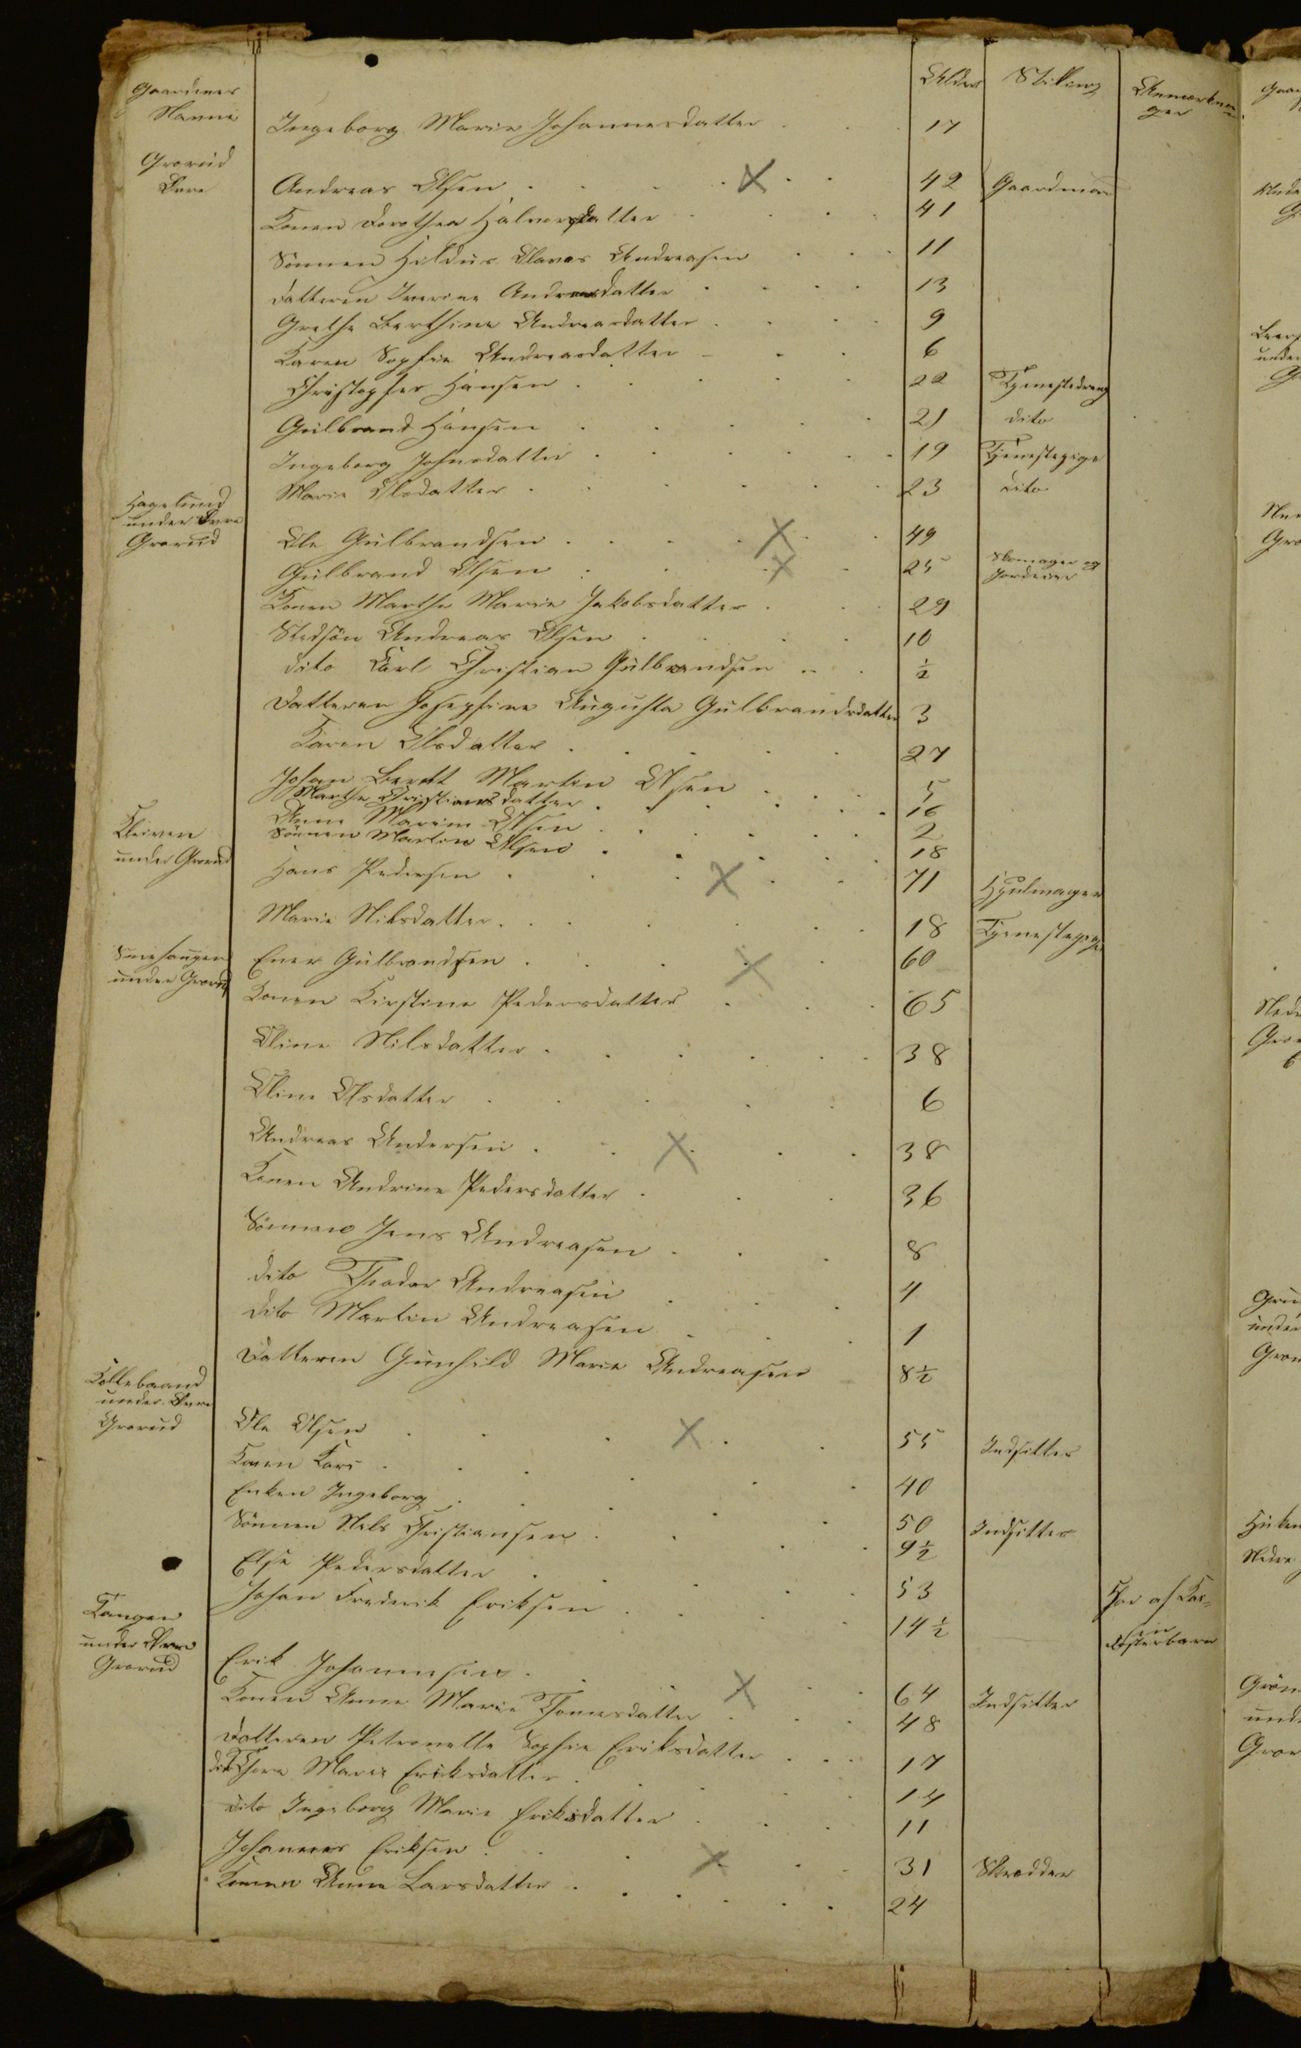 Gaardenes Navne Alder Stilling Anmærkninger
Ingeborg Marie Johannesdatter 17
Grorud Øvre Andreas Olsen 42 Gaardman
Konen Dorothea Halvorsdatter 41
Sönnen Hildus Olavas Andreasen 11
Datteren Iverine Andreasdatter 13
Grethe Berthine Andreasdatter 9
Karen Sophie Andreasdatter 6
Christopher Hansen 22 Tjenestedreng
Gulbrand Hansen 21 dito
Ingeborg Johnsdatter 19 Tjenestepige
Marie Olsdatter 23 dito
Hagelund under Øvre Grorud Ole Gulbrandsen 49
Gulbrand Olsen 25 Skomager og Jordeier
Konen Marthe Marie Jakobsdatter 29
Stedsön Andreas Olsen 10
dito Carl Christian Gulbrandsen ½
Datteren Josephine Augusta Gulbrandsdatter 3
Karen Olsdatter 27
Johan Berndt Martin Olsen 5
Marthe Christiansdatter 16
Anne Marie Olsen 2
Sönnen Martin Olsen 18
Kleiven under Grorud Hans Pedersen 71 Hjulmager
Marie Nilsdatter 18 Tjenestepige
Smiehaugen under Grorud Ener Gulbrandsen 60
Konen Kirstine Pedersdatter 65
Oline Nilsdatter 38
Oline Olsdatter 6
Andreas Andersen 38
Konen Andrine Pedersdatter 36
Sönnen Jens Andreasen 8
dito Theodor Andreasen 4
dito Martin Andreasen 1
Datteren Gunhild Marie Andreasen 8½
Kollebaand under Øvre Grorud Ole Olsen 55 Indsitter
Konen Kari 40
Enken Ingeborg 50 Indsitter
Sönnen Nils Christiansen 9½
Else Pedersdatter 53
Johan Frederik Eriksen 14½ Fosterbarn
Tangen under Øvre Grorud Erik Johannesen 64 Indsitter
Konen Anne Marie Thomesdatter 48
Datteren Petronelle Sophie Eriksdatter 17
dito Thea Marie Eriksdatter 14
dito Ingeborg Marie Eriksdatter 11
Johannes Eriksen 31 Skrædder
Konen Anne Larsdatter 24